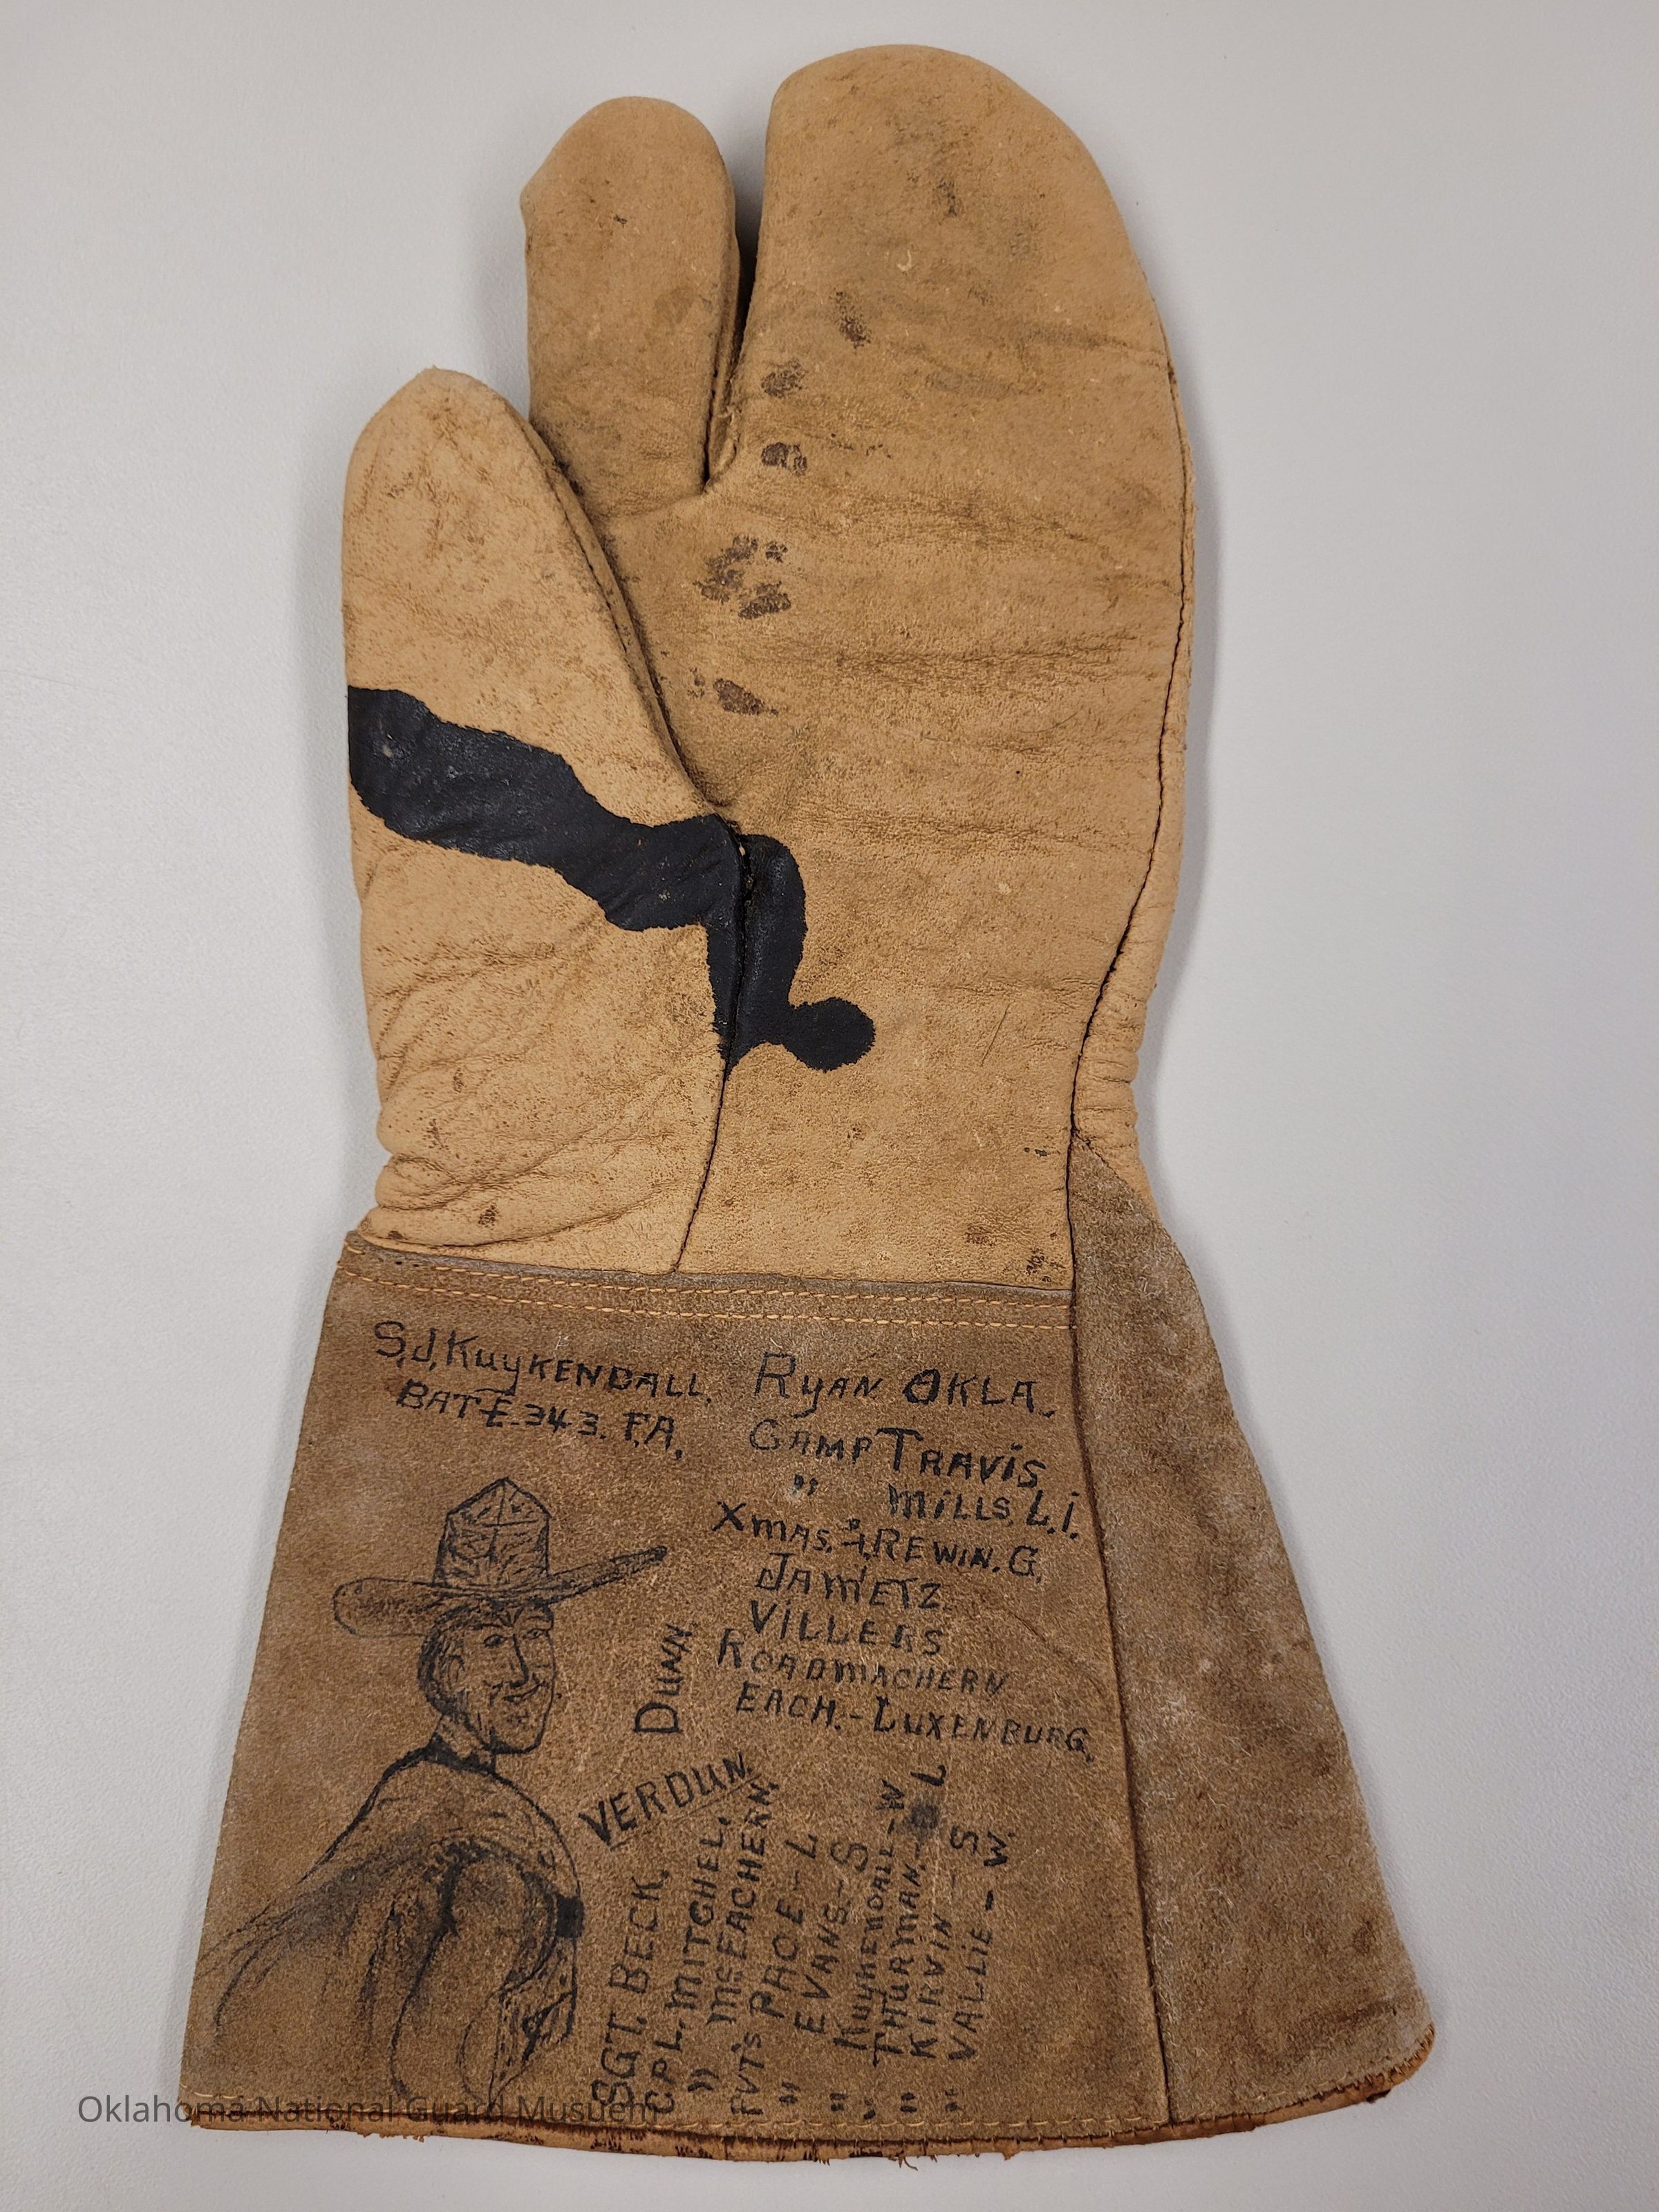 S.J. KuyKENDALL.
BAT E 343. F.A,
RyAN OKLA.
CAMP TRAViS
" MiLLS, L.i.
XMAS. & REWIN. G,
JAMETZ
ViLLERS
ROADMACHERN
EACH.- LUXENBURG,
DUNN.
VERDUN.
SGT. BECK,
CPL, MITCHEL,
" MSEACHERN,
PVT's PROE - L
" EVANS - S
" KuyKENDALL - W
" THURMAN, - L
" KIRVIN - S
" VALLIE - W.
Oklahoma National Guard Musuem